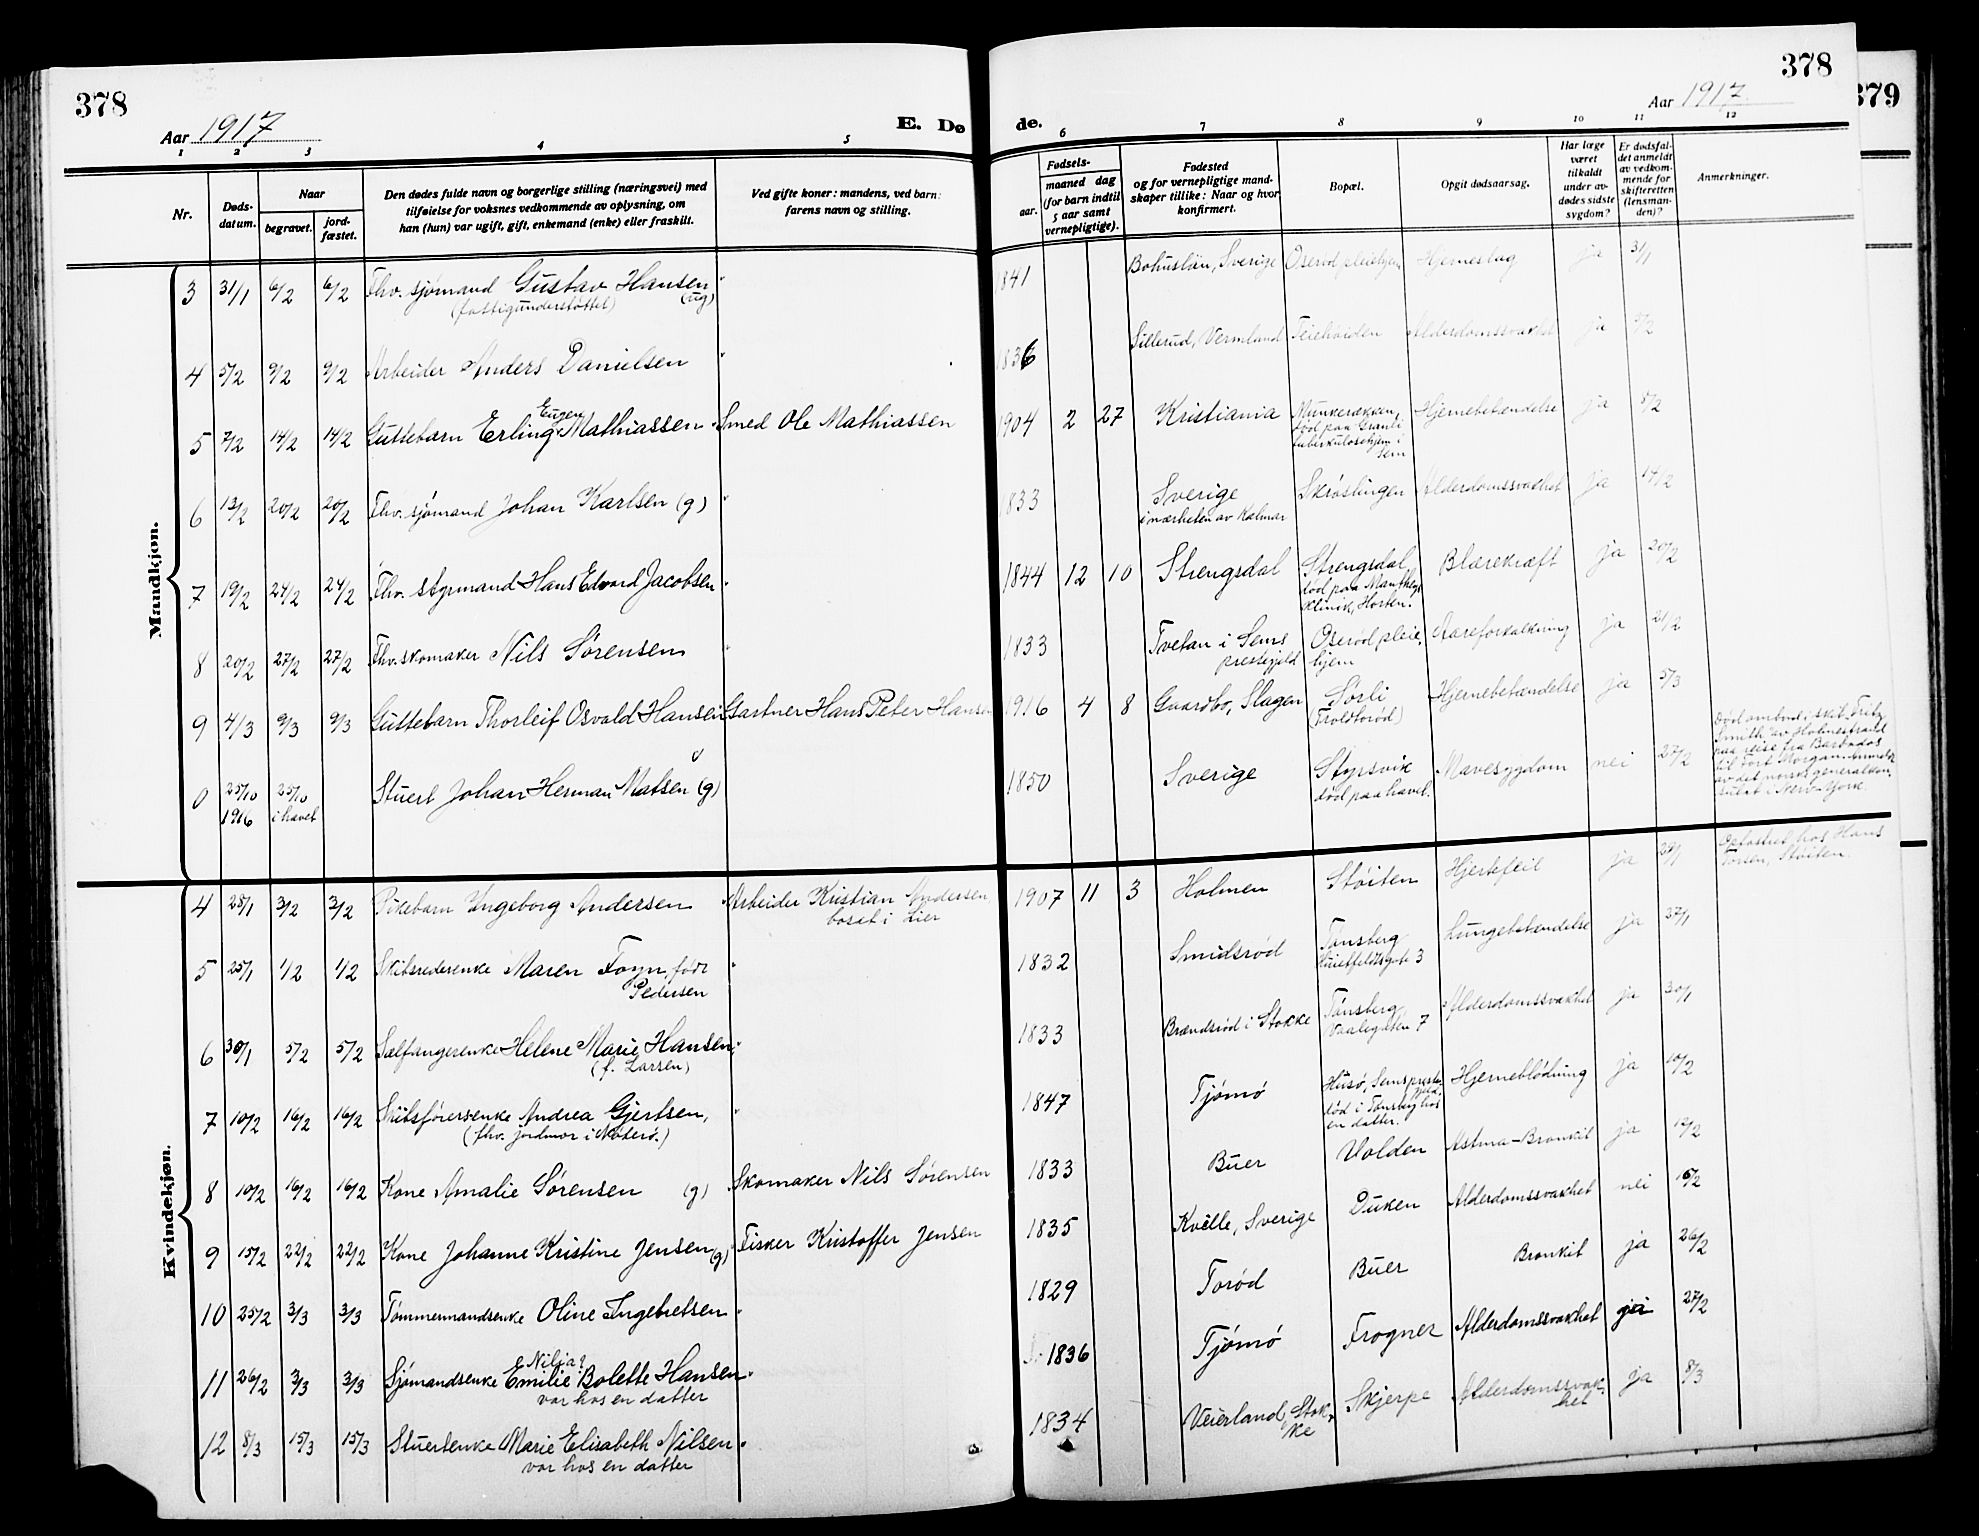 378
Aar 1917
E. Dø
de.
378
Aar 1917
379
1 2 3 4 5 6 7 8 9 10 11 12
Nr.
Døds-
datum.
Naar
begravet.
jord-
fæstet.
Den dødes fulde navn og borgerlige stilling (næringsvei) med
tilføielse for voksnes vedkommende av oplysning, om
han (hun) var ugift, gift, enkemand (enke) eller fraskilt.
Ved gifte koner: mandens, ved barn:
farens navn og stilling.
Fødsels-
aar.
maaned dag
(for barn indtil
5 aar samt
vernepligtige).
Fødested
og for vernepligtige mand-
skaper tillike: Naar og hvor
konfirmert.
Bopæl.
Opgit dødsaarsag.
Har læge
været
tilkaldt
under av-
dødes sidste
sygdom?
Er dødsfal-
det anmeldt
av vedkom-
mende for
skifteretten
(lensman-
den)?
Anmerkninger.
Mandkjøn.
3 31/1 6/2 6/2 Fhv. sjømand Gustav Hansen (ug) " 1841 Bohuslän, Sverige Oserød pleiehjem Hjerneslag ja 31/1
(fattigunderstøttet)
4 5/2 9/2 9/2 Arbeider Anders Danielsen " 1836 Sillerud, Vermland Teiehøiden Alderdomssvakhet ja 5/2
5 7/2 14/2 14/2 Guttebarn Erling Eugen Mathiassen Smed Ole Mathiassen 1904 2 27 Kristiania Munkerækken, Hjernebetændelse ja 8/2
død paa Granli
tuberkulosehjem i
Sem
6 13/2 20/2 20/2 Fhv. sjømand Johan Karlsen (g) " 1833 Sverige Skrøslingen Alderdomssvakhet ja 14/2
i nærheten av Kalmar
7 19/2 24/2 24/2 Fhv. styrmand Hans Edvard Jacobsen " 1844 12 10 Strengsdal Strengsdal, Blærekræft ja 20/2
død paa
klinik, Horten.
8 20/2 27/2 27/2 Fhv. skomaker Nils Sørensen " 1833 Tvetan i Sems Oserød pleie- Aareforkalkning ja 21/2
prestegjeld hjem
9 4/3 9/3 9/3 Guttebarn Thorleif Osvald Hansen Gartner Hans Peter Hansen 1916 4 8 Gaardbo, Slagen Sørli Hjernebetændelse ja 5/3
(Troldborød)
0 25/10 25/10 Stuert Johan Herman Matsen (g) 1850 Sverige Styrsvik Mavesygdom nei 27/2
1916 i havet død paa havet.
Død ombord i skib "Fritz
Smith" av Holmestrand
paa reise fra Barbados
til Port Morgan. Anmeldt
av det norske generalkon-
sulat i New-York.
Kvindekjøn.
4 28/1 3/2 3/2 Pikebarn Ingeborg Andersen Arbeider Kristian Andersen 1907 11 3 Holmen Støiten Hjertefeil ja 29/1 Opfostret hos Hans
bosat i Lier Støiten.
5 25/1 1/2 1/2 Skibsrederenke Maren Foyn, født " 1832 Smidsrød Tønsberg Lungebetændelse ja 27/1
Pedersen 3
6 30/1 5/2 5/2 Selfangerenke Helene Marie Hansen, " 1833 Brændsrød i Stokke Tønsberg, Alderdomssvakhet ja 30/1
(f. Larsen) 7
7 10/2 16/2 16/2 Skibsførersenke Andrea Gjertsen, " 1847 Tjømø Husø, Sems preste- Hjerneblødning ja 10/2
(fhv. jordmor i Nøterø.) gjeld,
død i Tønsberg hos
en datter.
8 10/2 16/2 16/2 Kone Amalie Sørensen (g) Skomaker Nils Sørensen 1833 Buer Volden Astma-Bronkit ja 12/2
9 15/2 22/2 22/2 Kone Johanne Kristine Jensen (g) Fisker Kristoffer Jensen 1835 Kville, Sverige Duken Alderdomssvakhet nei 16/2
10 25/2 3/3 3/3 Tømmermandsenke Oline Ingebretsen " 1829 Torød Buer Bronkit ja 26/2
11 26/2 3/3 3/3 Sjømandsenke Emilie Bolette Hansen " 1836 Tjømø Frogner Alderdomssvakhet 27/2
Nilia?
var hos en datter
12 8/3 15/3 15/3 Stuertenke Marie Elisabeth Nilsen " 1834 Veierland, Stok- Skjerpe Alderdomssvak- ja 8/3
var hos en datter ke het